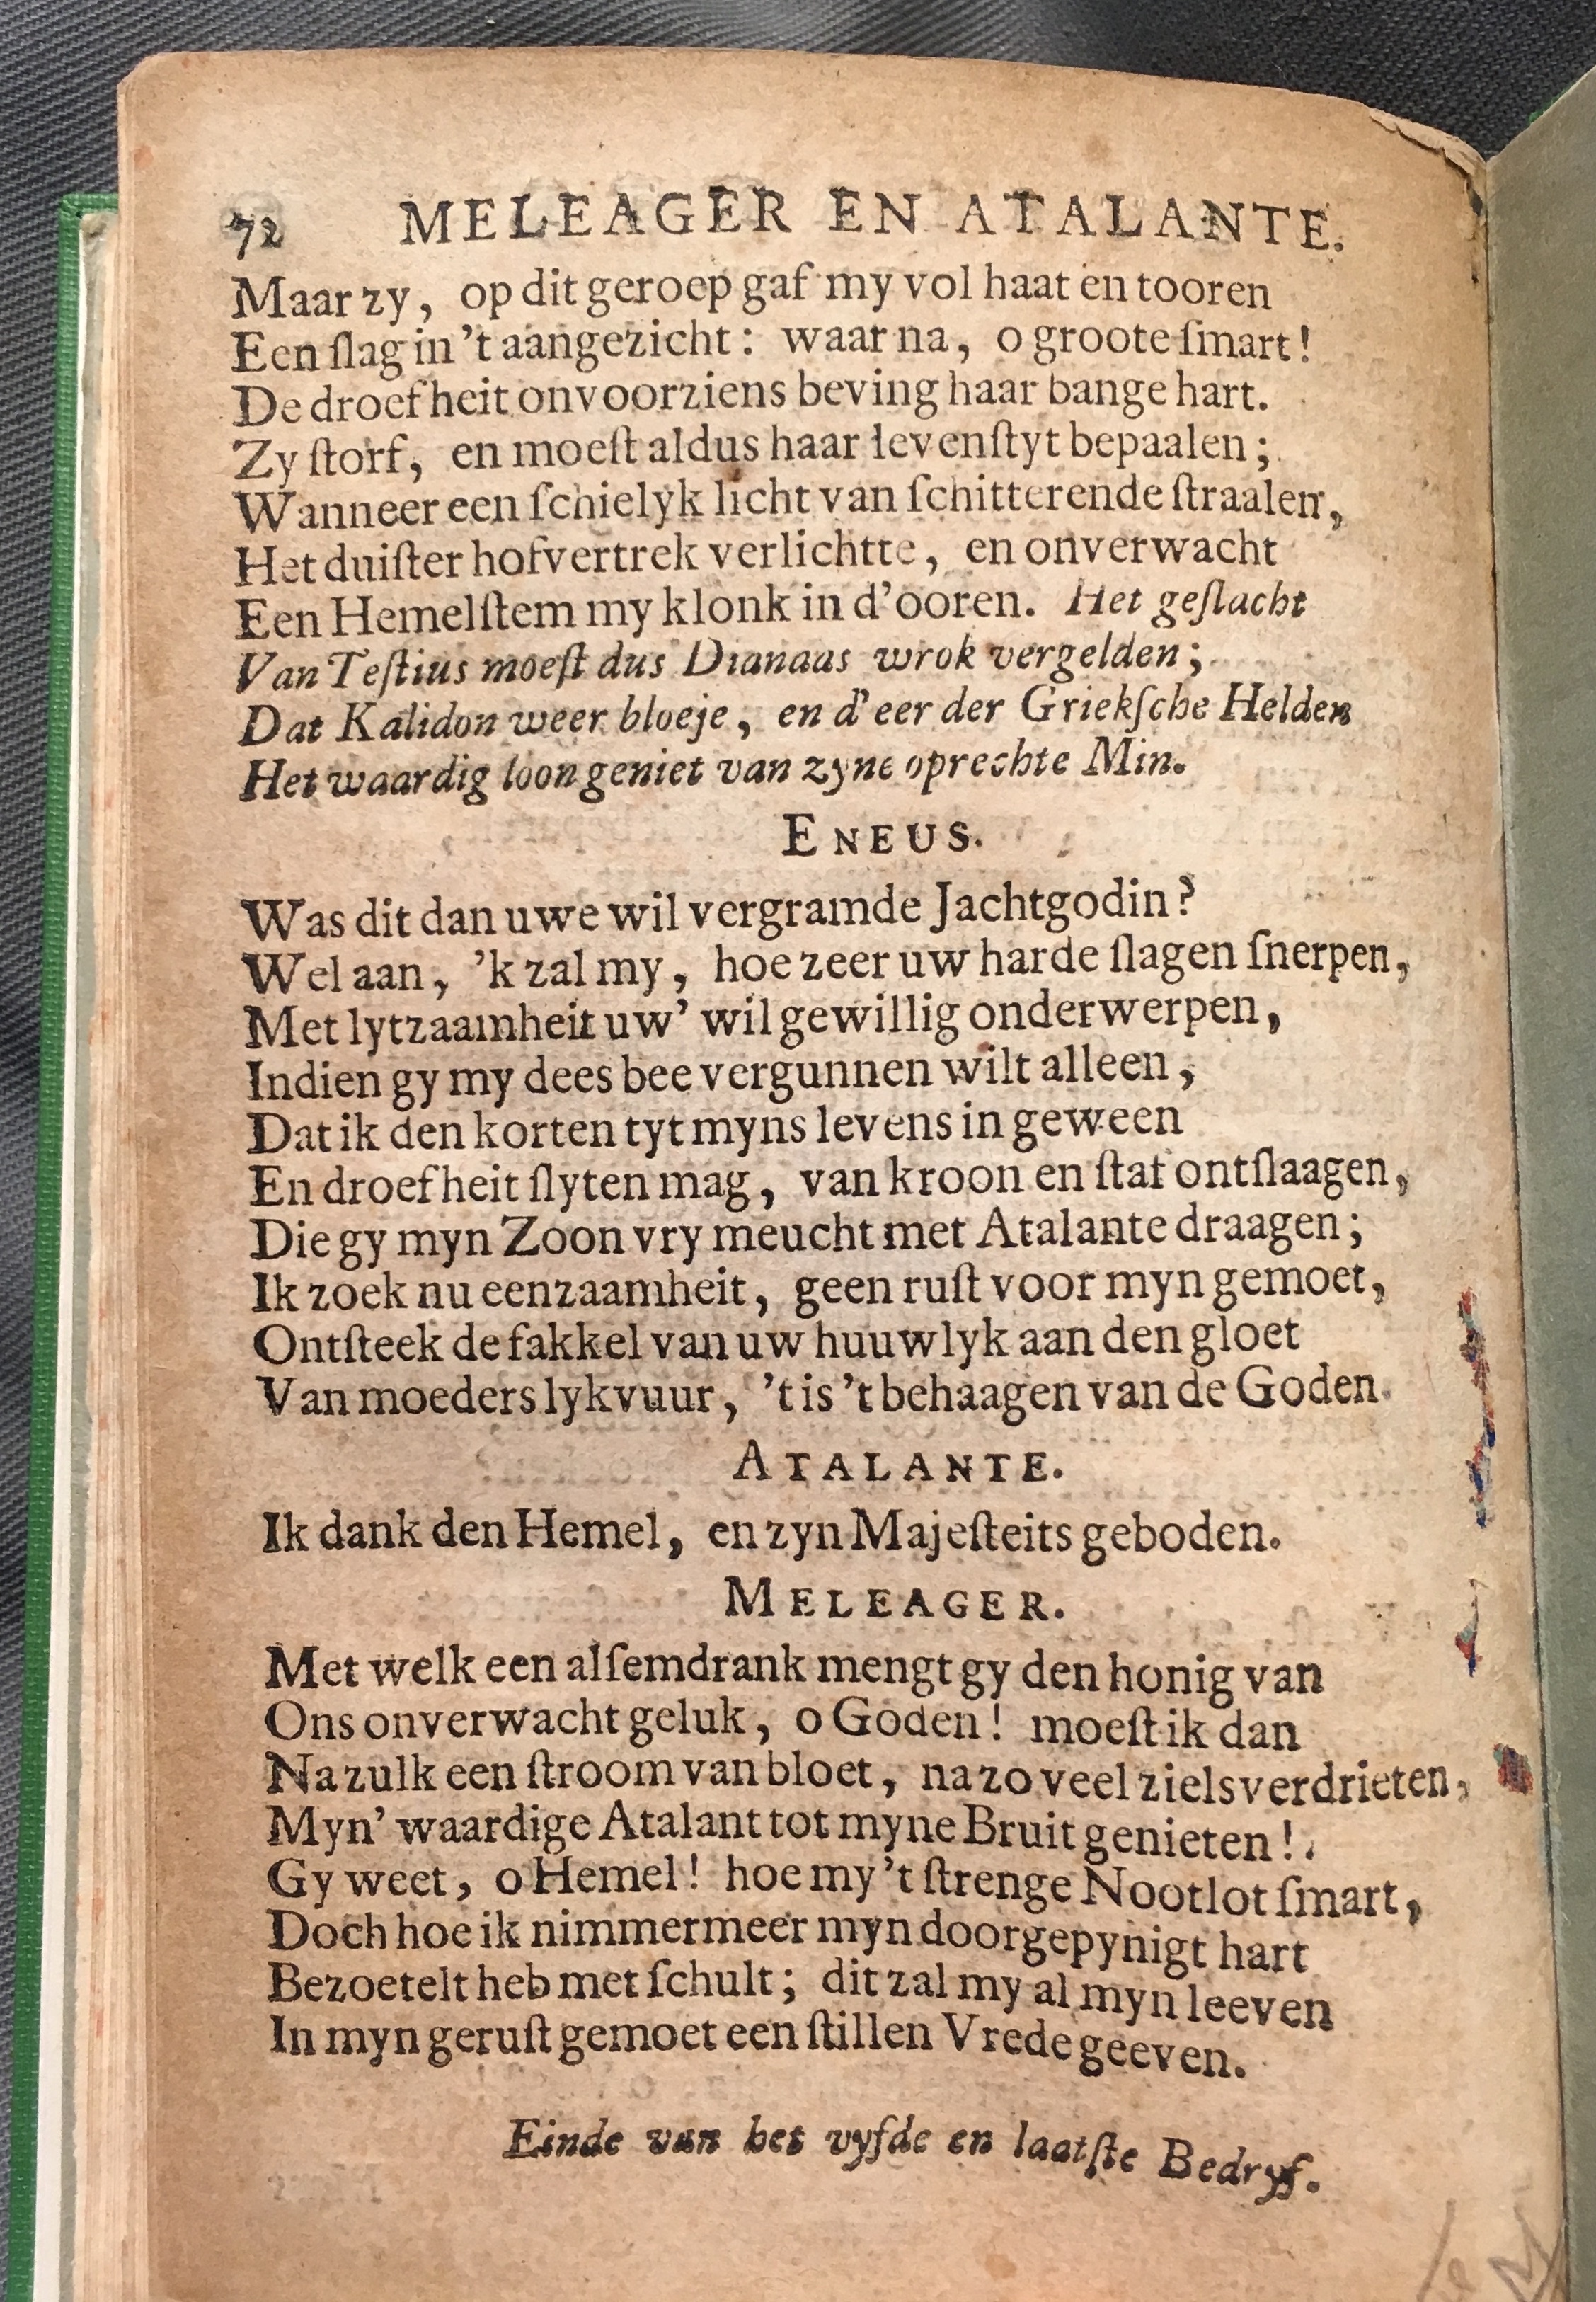 72 MELEAGER EN ATALANTE.
Maar zy, op dit geroep gaf my vol haat en tooren
Een ſlag in 't aangezicht: waar na, o groote ſmart!
De droefheit onvoorziens beving haar bange hart.
Zy ſtorf, en moeſt aldus haar levenſtyt bepaalen;
Wanneer een ſchielyk licht van ſchitterende ſtraalen,
Het duiſter hofvertrek verlichtte, en onverwacht
Een Hemelſtem my klonk in d'ooren. Het geſlacht
Van Teſtius moeſt dus Dianaas wrok vergelden;
Dat Kalidon weer bloeje, en d'eer der Griekſche Helden
Het waardig loon geniet van zyne oprechte Min.
ENEUS.
Was dit dan uwe wil vergramde Jachtgodin?
Wel aan, 'k zal my, hoe zeer uw harde ſlagen ſnerpen,
Met lytzaamheit uw' wil gewillig onderwerpen,
Indien gy my dees bee vergunnen wilt alleen,
Dat ik den korten tyt myns levens in geween
En droefheit ſlyten mag, van kroon en ſtaf ontſlaagen,
Die gy myn Zoon vry meucht met Atalante draagen;
Ik zoek nu eenzaamheit, geen ruſt voor myn gemoet,
Ontſteek de fakkel van uw huuwlyk aan den gloet
Van moeders lykvuur, 't is 't behaagen van de Goden.
ATALANTE.
Ik dank den Hemel, en zyn Majeſteits geboden.
MELEAGER.
Met welk een alſemdrank mengt gy den honig van
Ons onverwacht geluk, o Goden! moeſt ik dan
Na zulk een ſtroom van bloet, na zo veel zielsverdrieten,
Myn' waardige Atalant tot myne Bruit genieten!
Gy weet, o Hemel! hoe my 't ſtrenge Nootlot ſmart,
Doch hoe ik nimmermeer myn doorgepynigt hart
Bezoetelt heb met ſchult; dit zal my al myn leeven
In myn geruſt gemoet een ſtillen Vrede geeven.
Einde van het vyfde en laatſte Bedryf.